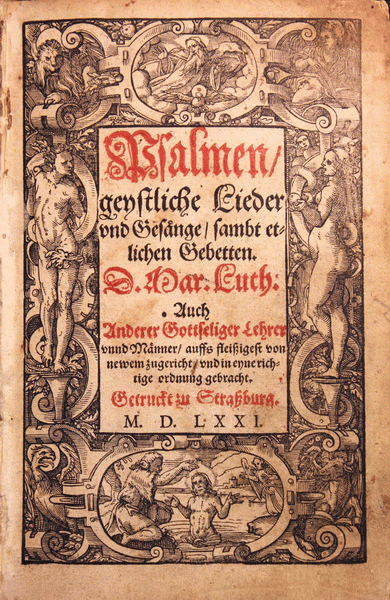 Psalmen/
geystliche Lieder
vnd Gesänge/ sambt et-
lichen Gebetten.
D. Mar: Luth:
Auch
Anderer Gottseliger Lehrer
vnnd Männer/ auffs fleißigest von
newem zugericht/ vnd in eyne rich-
tige ordnung gebracht.
Getruckt zu Straßburg.
M. D. LXXI.